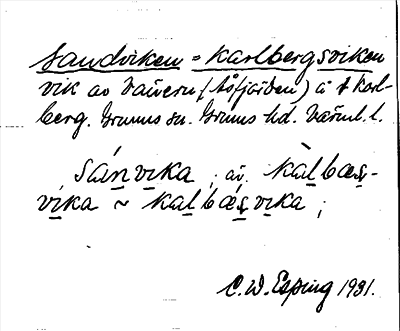 Sandviken = Karlbergsviken
vik av Vänern (Åsfjorden) å f Karl-
berg. Grums sn. Grums hd. Värml. l.
sánvika, äv. kàlbæs-
vika ~ kalbæ̀svika;
C. W. Esping 1931.